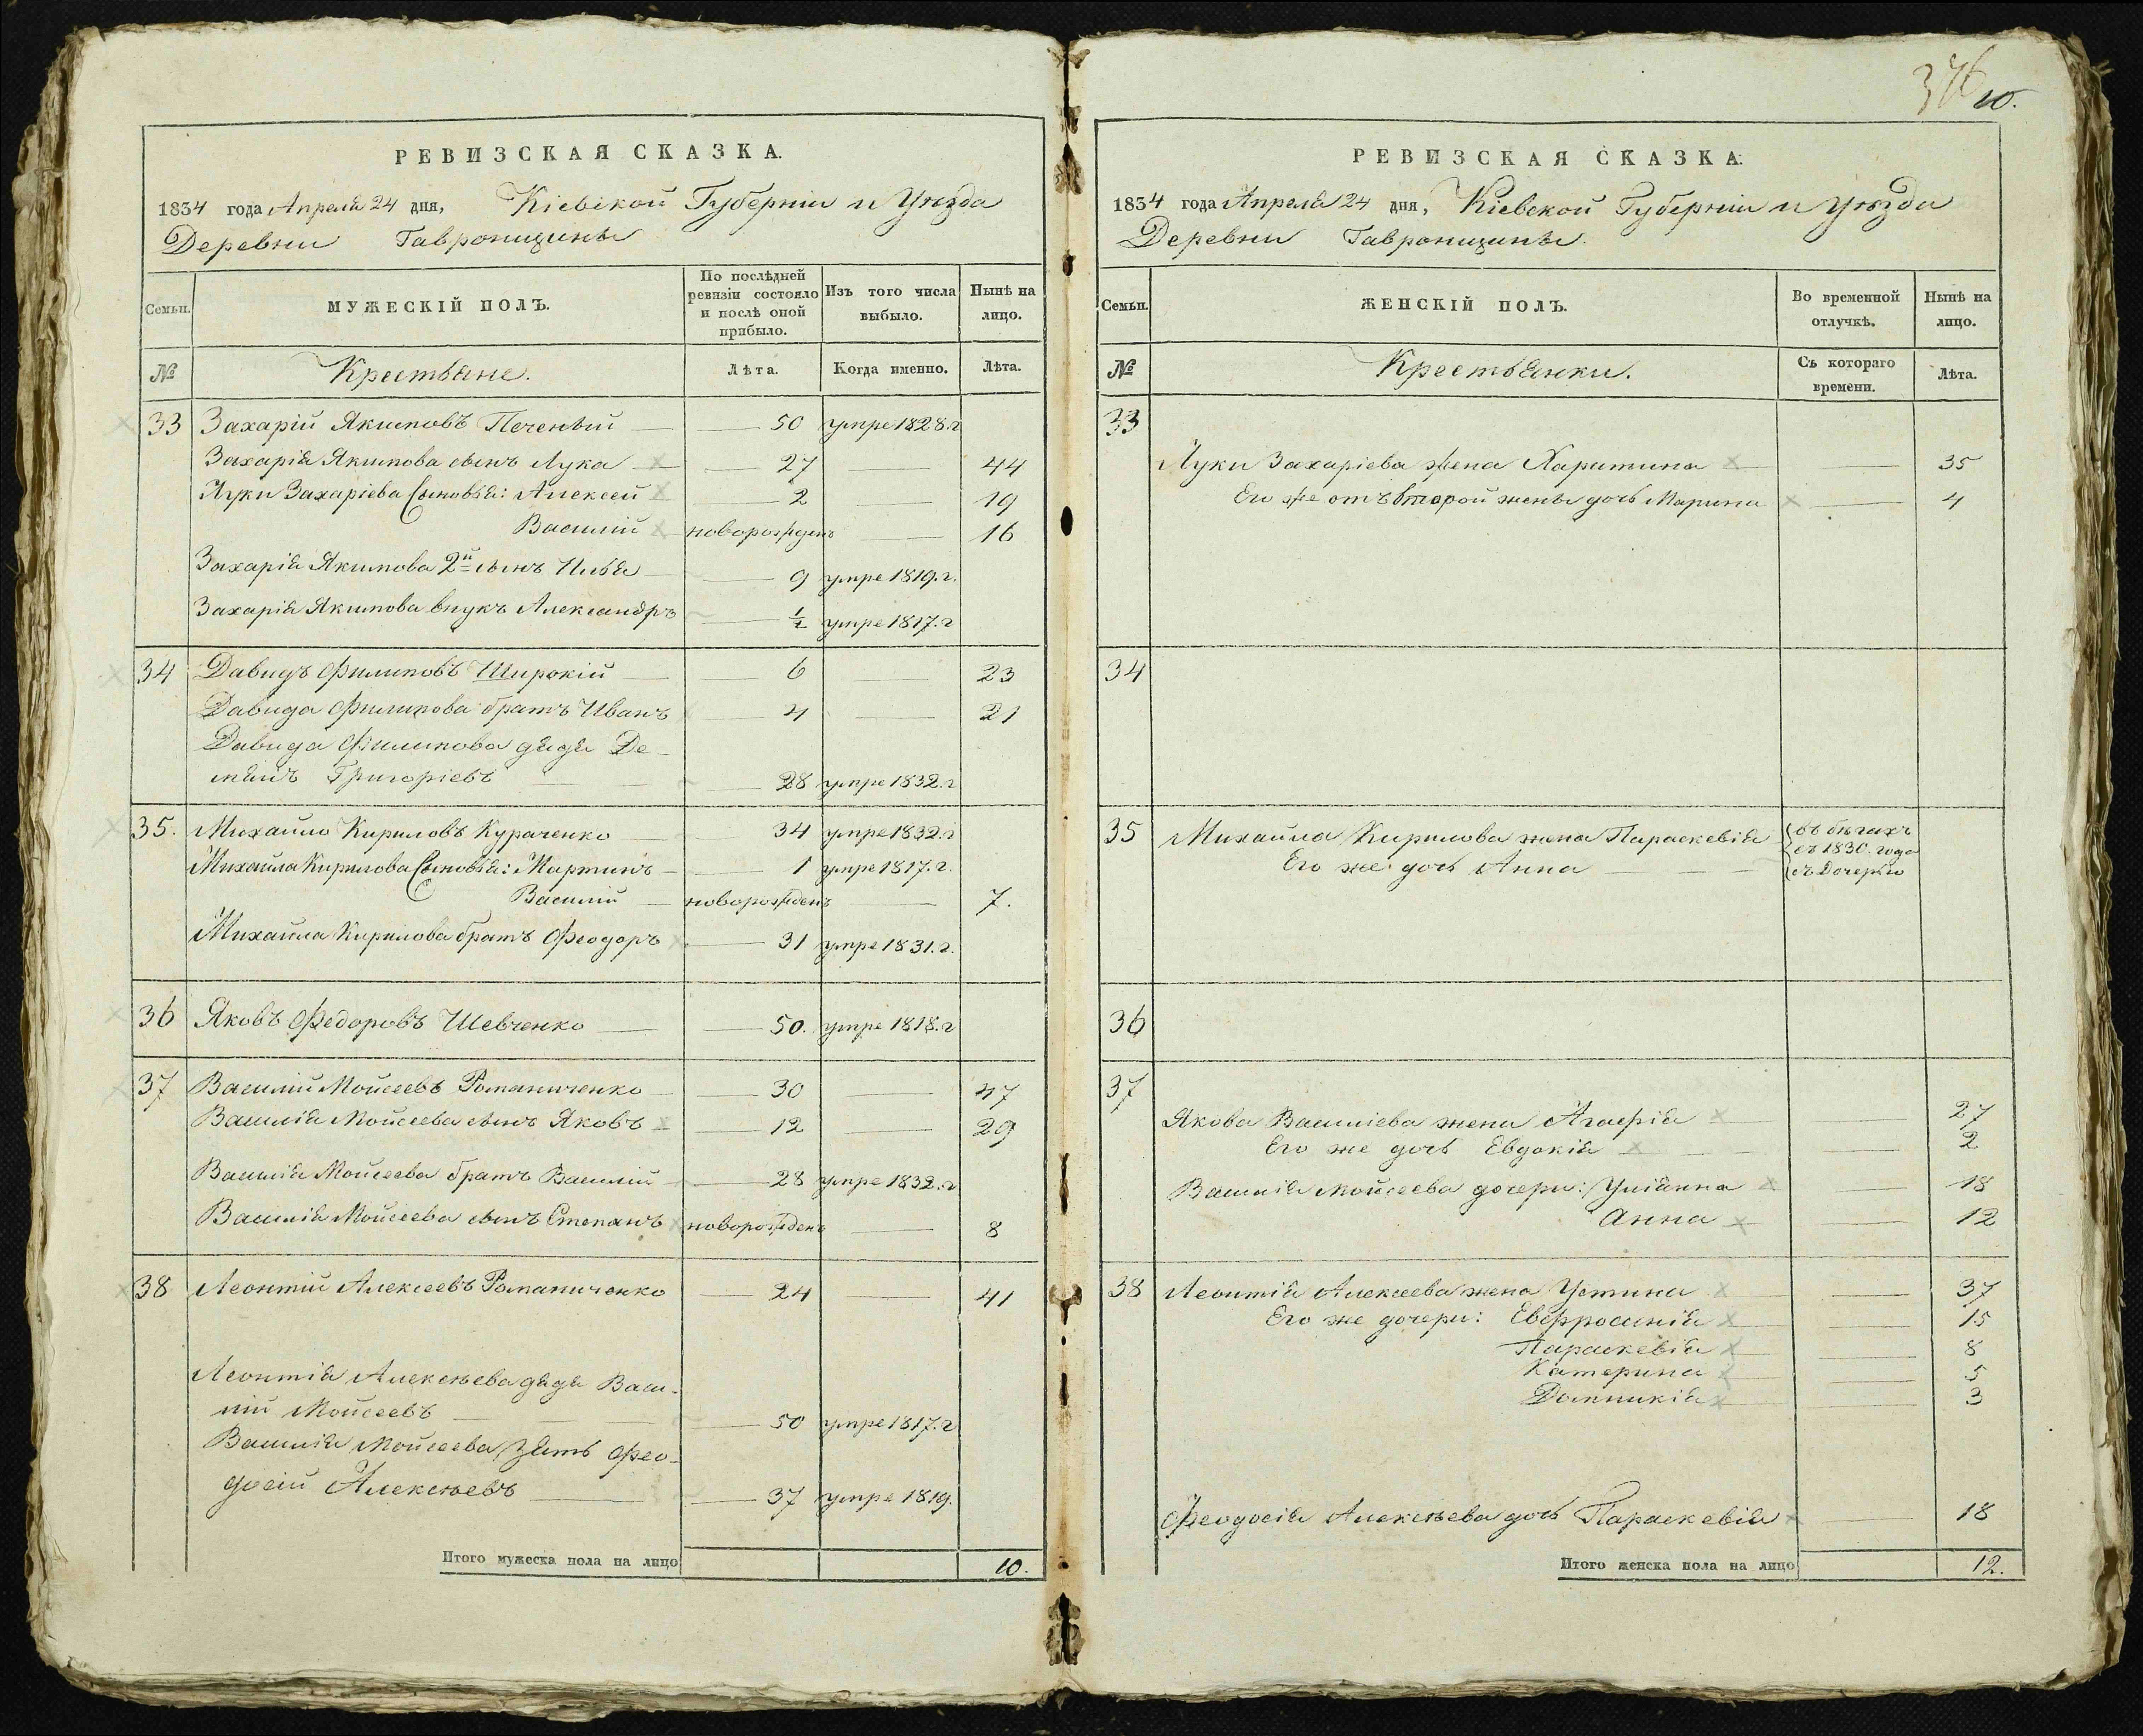 РЕВИЗСКАЯ СКАЗКА.
1834 года Апреля 24 дня, Кіевской Губерніи и Уѣзда
Деревни Гавронщины
Семьи.
МУЖЕСКІЙ ПОЛЪ.
По послѣдней ревизіи состояло и послѣ оной прибыло.
Изъ того числа выбыло.
Нынѣ на лицо.
№
Крестьяне.
Лѣта.
Когда именно.
Лѣта.
33 Захарій Якимовъ Печеный 50 умре 1828.г
Захарія Якимова сынъ Лука 27 44
Луки Захаріева Сыновья: Алексей 2 19
Василій новорожденъ 16
Захарія Якимова 2й сынъ Илья 9 умре 1819.г.
Захарія Якимова внукъ Александръ ½ умре 1817.г
34 Давидъ Филиповъ Широкій 6 23
Давида Филипова братъ Иванъ 4 21
Давида Филипова дядя Де-
мянъ Григоріевъ 28 умре 1832.г
35. Михайло Кириловъ Кураченко 34 умре 1832.г
Михайла Кирилова Сыновья: Мартинъ 1 умре 1817.г.
Василій новорожденъ 7.
Михайла Кирилова братъ Феодоръ 31 умре 1831.г.
36 Яковъ Федоровъ Шевченко 50. умре 1818.г
37 Василій Мойсеевъ Романиченко 30 47
Василія Мойсеева сынъ Яковъ 12 29
Василія Мойсеева братъ Василій 28 умре 1832.г
Василія Мойсеева сынъ Степанъ новорожденъ 8
38 Леонтій Алексеевъ Романиченко 24 41
Леонтія Алексѣева дядя Васи-
лій Мойсеевъ 50 умре 1817.г
Василія Мойсеева зять Фео-
досій Алексѣевъ 37 умре 1819.
Итого мужеска пола на лицо 10.
376
10.
РЕВИЗСКАЯ СКАЗКА.
1834 года Апреля 24 дня, Кіевской Губерніи и Уѣзда
Деревни Гавронщины.
Семьи.
ЖЕНСКІЙ ПОЛЪ.
Во временной отлучкѣ.
Нынѣ на лицо.
№
Крестьянки.
Съ котораго времени.
Лѣта.
33
Луки Захаріева жена Харитина 35
Его же отъ второй жены дочь Марина 4
34
35 Михайла Кирилова жена Параскевія въ бѣгахъ
съ 1830. года
Его же дочь Анна съ Дочерью
36
37
Якова Василіева жена Агафія 27
Его же дочь Евдокія 2
Василія Мойсеева дочери: Уліянна 18
Анна 12
38 Леонтія Алексеева жена Устина 37
Его же дочери: Евфросинія 15
Параскевія 8
Катерина 5
Домникія 3
Феодосія Алексѣева дочь Параскевія 18
Итого женска пола на лицо 12.